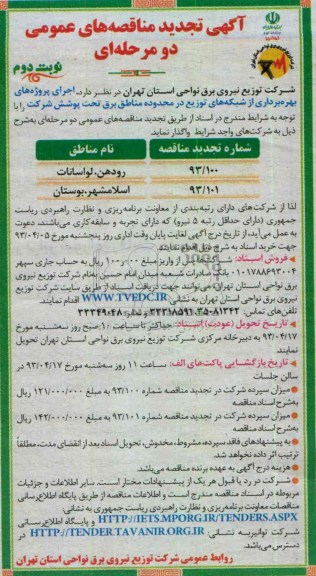 آگهی تجدید مناقصه‌های عمومی
دو مرحله‌ای
نوبت دوم
شرکت توزیع نیروی برق نواحی استان تهران در نظر دارد، اجرای پروژه‌های
بهره‌برداری از شبکه‌های توزیع در محدوده مناطق برق تحت پوشش شرکت را با
توجه به شرایط مندرج در اسناد از طریق تجدید مناقصه‌های عمومی دو مرحله‌ای به‌شرح
ذیل به شرکت‌های واجد شرایط واگذار نماید.
شماره تجدید مناقصه نام مناطق
۹۳/۱۰۰ رودهن، لواسانات
۹۳/۱۰۱ اسلامشهر، بوستان
لذا از شرکت‌های دارای رتبه‌بندی از معاونت برنامه‌ریزی و نظارت راهبردی ریاست
جمهوری (دارای حداقل رتبه ۵ نیرو) که دارای تجربه و سابقه کاری می‌باشند دعوت
به عمل می‌آید، از تاریخ درج آگهی لغایت پایان وقت اداری روز پنجشنبه مورخ ۹۳/۰۴/۰۵
جهت خرید اسناد به شرح ذیل اقدام نمایند.
فروش اسناد: شرکت‌ها قبل از واریز مبلغ ۱۰۰/۰۰۰ ریال به حساب جاری سپهر
۰۱۰۱۷۸۸۶۹۳۰۰۴ بانک صادرات شعبه میدان امام حسین به‌نام شرکت توزیع نیروی
برق نواحی استان تهران می‌توانند جهت دریافت اسناد از طریق سایت شرکت توزیع
نیروی برق نواحی استان تهران به نشانی: WWW.TVEDC.IR اقدام نمایند.
تلفن‌های تماس:
تاریخ تحویل (عودت) اسناد: حداکثر تا ساعت ۱۰ صبح روز سه‌شنبه مورخ
۹۳/۰۴/۱۷ به دبیرخانه مرکزی شرکت توزیع نیروی برق نواحی استان تهران تحویل
نمایند.
تاریخ بازگشایی پاکت‌های الف: ساعت ۱۱ روز سه‌شنبه مورخ ۹۳/۰۴/۱۷ در
سالن جلسات
میزان سپرده شرکت در تجدید مناقصه شماره ۹۳/۱۰۰ به مبلغ ۱۲۱/۰۰۰/۰۰۰ ریال
به‌شرح اسناد مناقصه
میزان سپرده شرکت در تجدید مناقصه شماره ۹۳/۱۰۱ به مبلغ ۱۴۲/۰۰۰/۰۰۰ ریال
به‌شرح اسناد مناقصه
به پیشنهادهای فاقد سپرده، مشروط، مخدوش، تحویل اسناد بعد از انقضای مدت، مطلقاً
ترتیب اثر داده نخواهد شد.
هزینه درج آگهی به عهده برنده مناقصه می‌باشد.
شرکت در رد یا قبول هر یک از پیشنهادات مختار است. سایر اطلاعات و جزئیات
مربوطه در اسناد مناقصه مندرج است و اطلاعات مناقصه از طریق پایگاه اطلاع‌رسانی
مناقصات معاونت برنامه‌ریزی و نظارت راهبردی ریاست جمهوری به نشانی:
HTTP://IETS.MPORG.IR/TENDERS.ASPX و پایگاه اطلاع‌رسانی
شرکت توانیر به نشانی: HTTP://TENDER.TAVANIR.ORG.IR در
دسترس می‌باشد.
روابط عمومی شرکت توزیع نیروی برق نواحی استان تهران